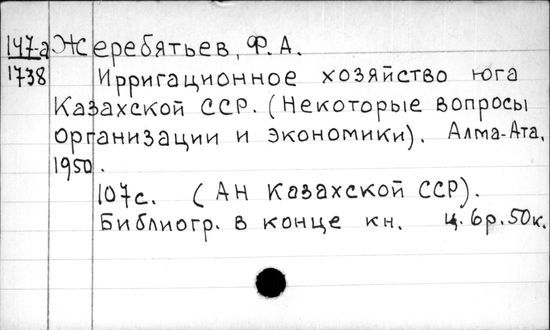 147-а Жеребятьев, Ф.А.
1738 Ирригационное хозяйство юга
Казахской ССР. (Некоторые вопросы
организации и экономики). Алма-Ата,
1950.
107с. (Ан Казахской ССР).
Библиогр. в конце кн. ц. 6р.50к.